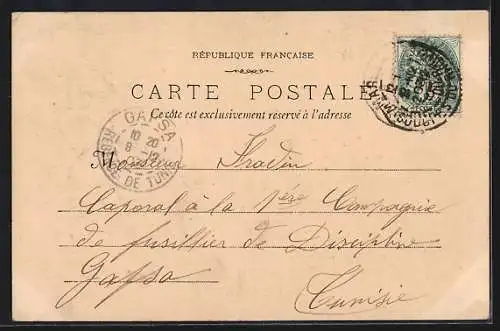 RÉPUBLIQUE FRANÇAISE
CARTE POSTALE
Ce côté est exclusivement réservé à l'adresse
GAFSA
10 20
8 - 12
RÉGENCE DE TUNIS
Monsieur Fradin
Caporal à la 1ère Compagnie
de fusillier de Discipline
Gafsa
Tunisie